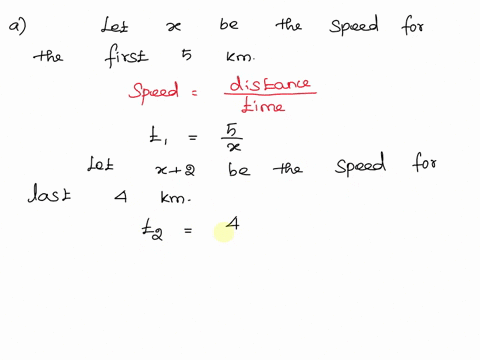 a) Let x be the speed for
the first 5 km.
Speed = distance / time
t₁ = 5/x
Let x+2 be the speed for
last 4 km.
t₂ = 4